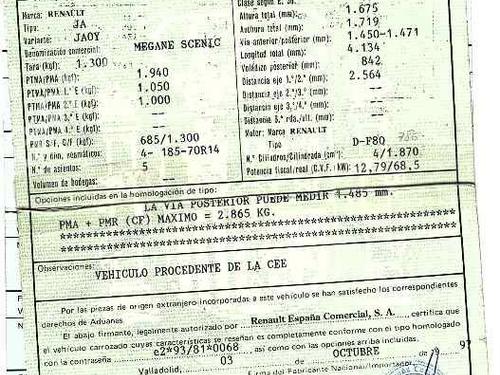 Marca: RENAULT
Tipo: JA
Variante: JAOY
Denominación comercial: MEGANE SCENIC
Tara (kgf): 1.300
PTMA/PMA (kgf): 1.940
PTMA/PMA 1.º E (kgf): 1.050
PTMA/PMA 2.º E (kgf): 1.000
PTMA/PMA 3.º E (kgf):
PTMA/PMA 4.º E (kgf):
PMR S/F, C/F (kgf): 685/1.300
N.º y dim. neumáticos: 4- 185-70R14
N.º de asientos: 5
Volumen de bodegas: —
Altura total (mm): 1.675
Anchura total (mm): 1.719
Vía anterior/posterior (mm): 1.450-1.471
Longitud total (mm): 4.134
Voladizo posterior (mm): 842
Distancia eje 1.º/2.º (mm): 2.564
Distancia eje 2.º/3.º (mm): —
Distancia eje 3.º/4.º (mm): —
Motor: Marca RENAULT
Tipo D-F8Q 786
N.º Cilindros/Cilindrada (cm³): 4/1.870
Potencia fiscal/real (C.V.F./kW): 12,79/68.5
Opciones incluidas en la homologación de tipo:
LA VIA POSTERIOR PUEDE MEDIR 1.485 mm.
PMA + PMR (CF) MAXIMO = 2.865 KG.
Observaciones:
VEHICULO PROCEDENTE DE LA CEE
Por las piezas de origen extranjero incorporadas a este vehículo se han satisfecho los correspondientes
derechos de Aduanas
El abajo firmante, legalmente autorizado por Renault España Comercial, S. A. certifica que
el vehículo carrozado cuyas características se reseñan es completamente conforme con el tipo homologado
con la contraseña e2*93/81*0068 así como con las opciones arriba incluidas.
Valladolid, 03 OCTUBRE 97
Firma del Fabricante Nacional/Importador